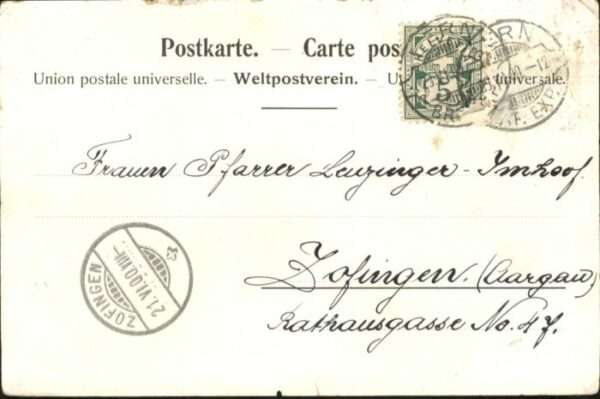 Postkarte. — Carte pos
Union postale universelle. — Weltpostverein. — U universale.
5
BERN
BR. F. EXP.
Frauen Pfarrer Leuzinger-Imhoof.
Zofingen. (Aargau)
Rathausgasse No. 47.
ZOFINGEN
21.VI.00.